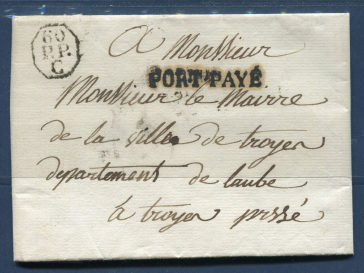 60
P.P.
C.
A Monsieur
PORT PAYÉ
Monsieur le Mairre
de la ville de troyes
departement de laube
a troyes pressé